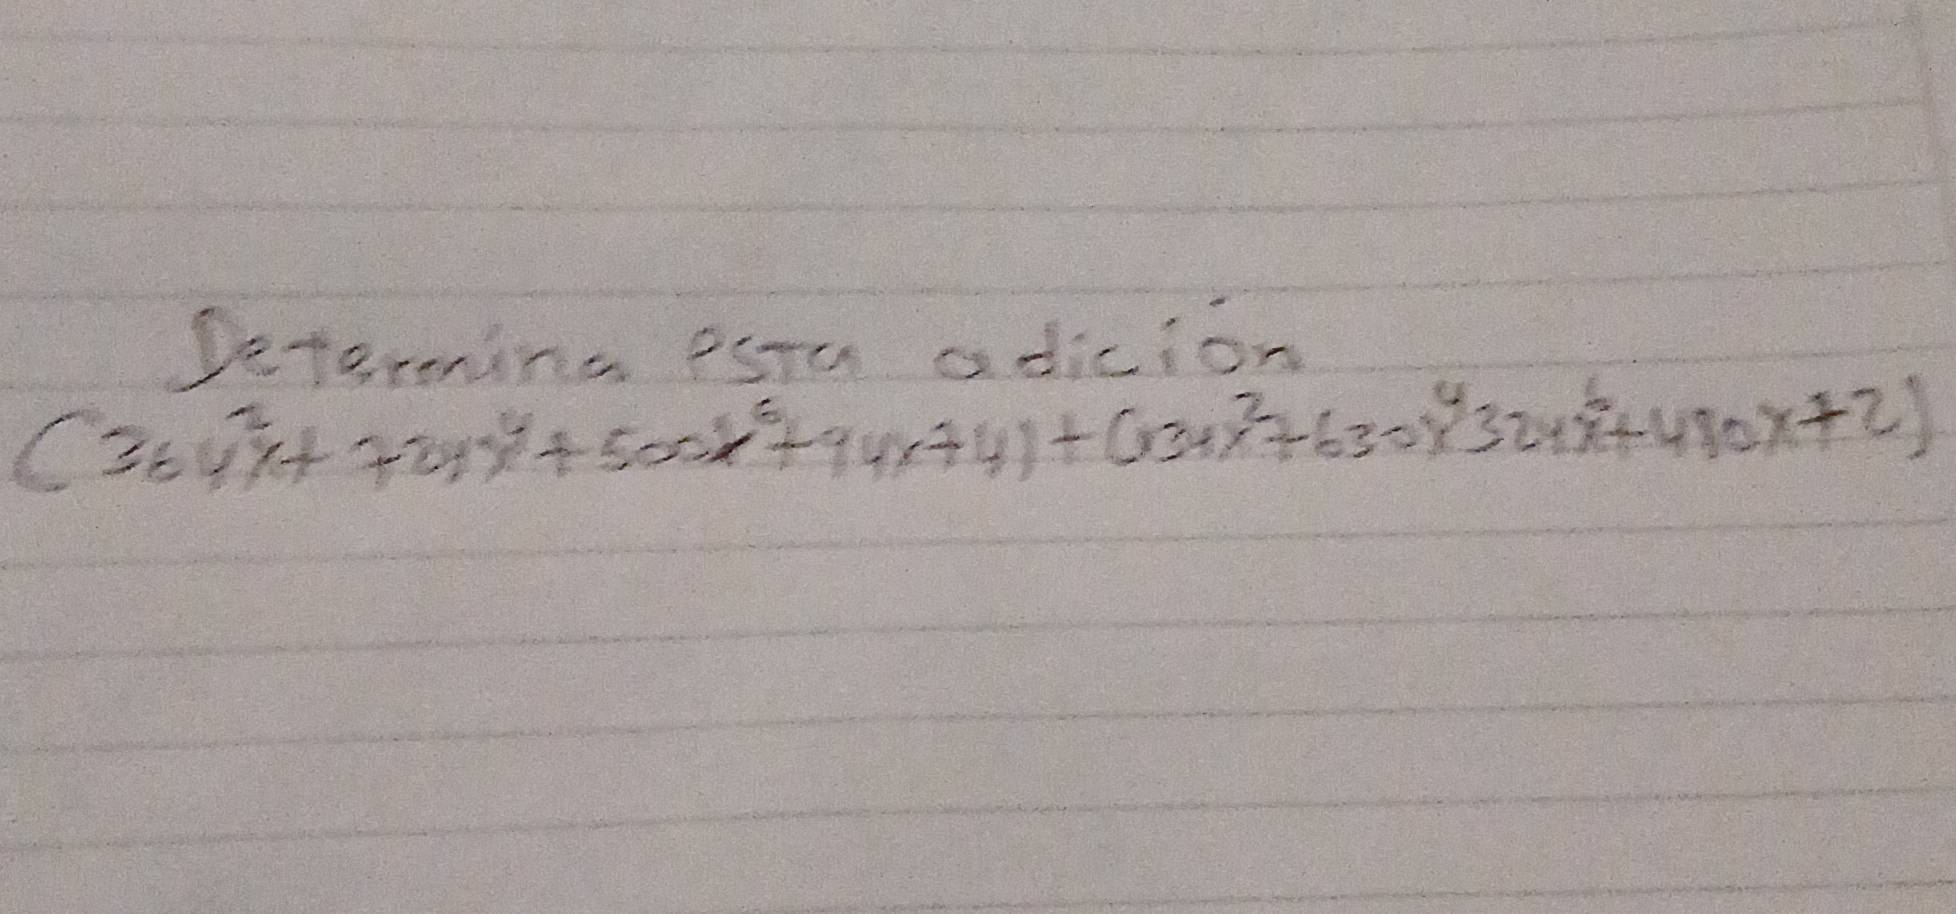 Determina esta adición
(364²x+ 724x⁴+500x⁶+94x+4)+(134x²+630x⁴324x⁶+430x+2)